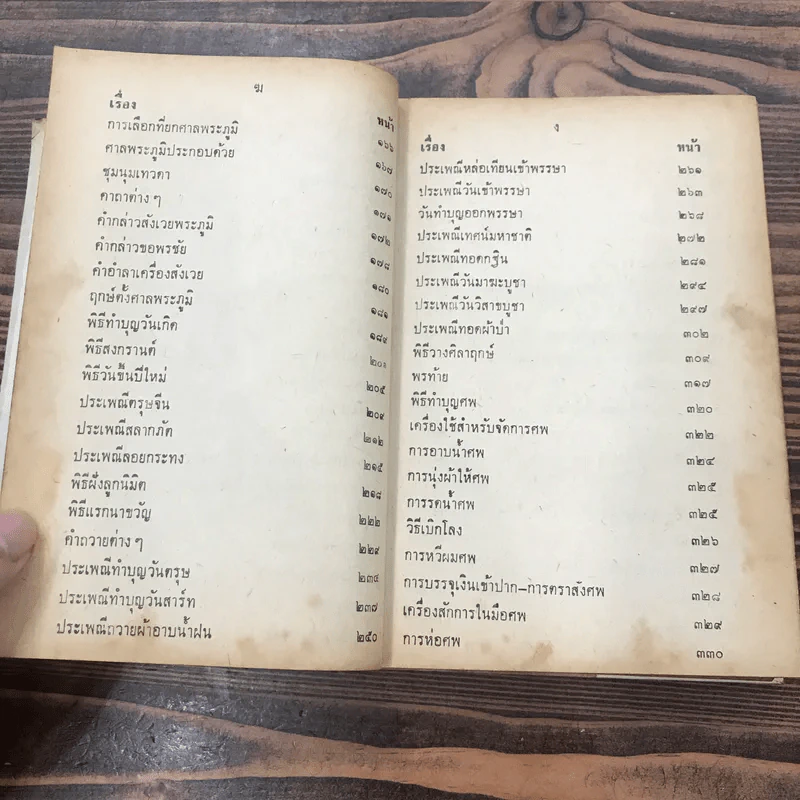 ฆ
เรื่อง หน้า
การเลือกที่ยกศาลพระภูมิ ๑๖๖
ศาลพระภูมิประกอบด้วย ๑๖๗
ชุมนุมเทวดา ๑๗๐
คาถาต่าง ๆ ๑๗๑
คำกล่าวสังเวยพระภูมิ ๑๗๒
คำกล่าวขอพรชัย ๑๗๘
คำอำลาเครื่องสังเวย ๑๘๐
ฤกษ์ตั้งศาลพระภูมิ ๑๘๑
พิธีทำบุญวันเกิด ๑๘๔
พิธีสงกรานต์
พิธีวันขึ้นปีใหม่ ๒๐๕
ประเพณีตรุษจีน ๒๐๙
ประเพณีสลากภัต ๒๑๒
ประเพณีลอยกระทง ๒๑๕
พิธีฝังลูกนิมิต ๒๑๘
พิธีแรกนาขวัญ ๒๒๒
คำถวายต่าง ๆ ๒๒๙
ประเพณีทำบุญวันตรุษ ๒๓๔
ประเพณีทำบุญวันสาร์ท ๒๓๗
ประเพณีถวายผ้าอาบน้ำฝน ๒๕๐
ง
เรื่อง หน้า
ประเพณีหล่อเทียนเข้าพรรษา ๒๖๑
ประเพณีวันเข้าพรรษา ๒๖๓
วันทำบุญออกพรรษา ๒๖๘
ประเพณีเทศน์มหาชาติ ๒๗๒
ประเพณีทอดกฐิน ๒๘๑
ประเพณีวันมาฆะบูชา ๒๙๔
ประเพณีวันวิสาขบูชา ๒๙๗
ประเพณีทอดผ้าป่า ๓๐๒
พิธีวางศิลาฤกษ์ ๓๐๙
พรท้าย ๓๑๗
พิธีทำบุญศพ ๓๒๐
เครื่องใช้สำหรับจัดการศพ ๓๒๒
การอาบน้ำศพ ๓๒๔
การนุ่งผ้าให้ศพ ๓๒๕
การรดน้ำศพ ๓๒๕
วิธีเบิกโลง ๓๒๖
การหวีผมศพ ๓๒๗
การบรรจุเงินเข้าปาก–การตราสังศพ ๓๒๘
เครื่องสักการในมือศพ ๓๒๙
การห่อศพ ๓๓๐